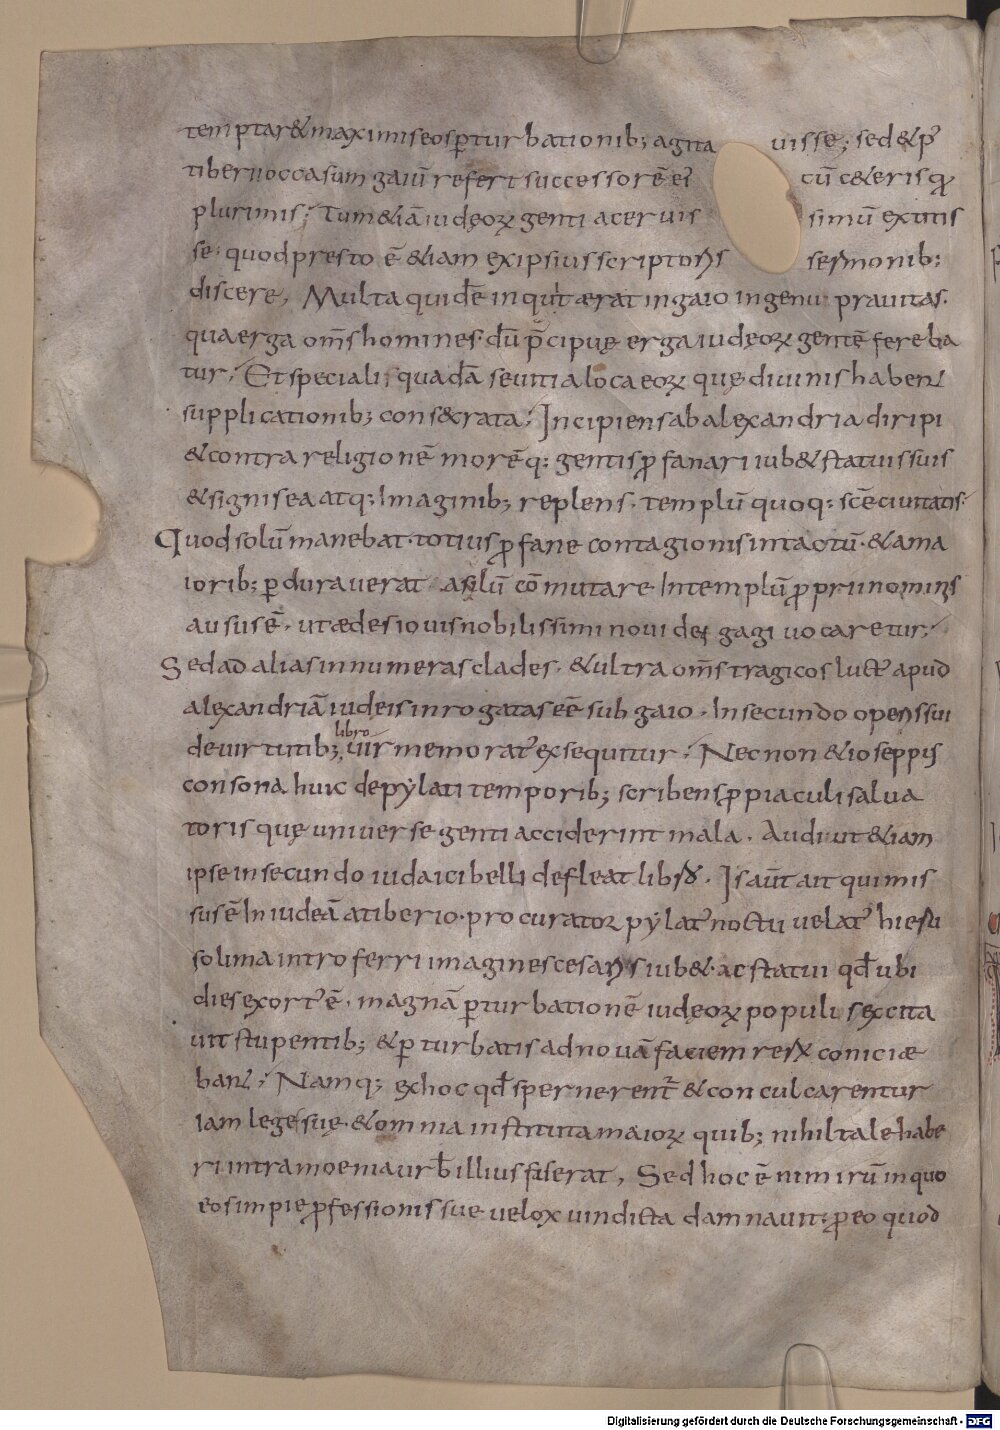 temptar& maximiseosp̄turbationib; agita uisse; sed & p̄
tiberii occasum gaiū refert successorē ei' cū c&eris q̄
plurimis; Tum &iā iudęoꝝ genti aceruis simū extitis
se. quod presto ē &iam ex ipsius scriptoris sermonib;
discere, Multa quidē inquit ærat in gaio ingenii prauitas.
qua erga om̄s homines. dū p̄cipuę erga iudęoꝝ gentē fereba
tur; Et speciali quadā seuitia loca eoꝝ quę diuinis habent
supplicationib; cons&crata; Incipiens ab alexandria diripi
& contra religionē morēq; gentis ꝓfanari iub& statuis suis
& signis ea atq; Imaginib; replens. templū quoq; scē ciuitatis.
Quod solū manebat. totius ꝓfane contagionis intactū. & a ma
iorib; ꝑdurauerat. asilū cōmutare In templū ꝓprii nominis
ausus ē. ut ædes iouis nobilissimi noui dei gagi uocaretur;
Sed ad alias innumeras clades. & ultra om̄s tragicos luct' apud
alexandriā iudeis inrogatas eē sub gaio. In secundo operis sui
de uirtutib; libro uir memorat' exsequitur; Nec non & ioseppis
consona huic de pẏlati temporib; scribens ꝓ piaculi salua
toris quę uniuerse genti acciderint mala. Audi ut &iam
ipse in secundo iudaici belli defleat libro. Is aūt ait qui mis
sus ē In iudeā a tiberio. procurator pẏlat' noctu uelat' hieru
solima introferri imagines cesaris iub&. ac statui qđ ubi
dies exort' ē. magnā ꝑturbationē iudęoꝝ populis excita
uit stupentib; & ꝑturbatis ad nouā faciem rerū coniciæ
bant; Namq; ex hoc qđ spernerent' & conculcarentur
Iam lege sue. & omnia instituta maioꝝ quib; nihil tale habe
ri intra moenia urb' illius fas erat, Sed hoc ē nimirū in quo
eos impie ꝓfessionis sue uelox uindicta damnauit. ꝓ eo quod
Digitalisierung gefördert durch die Deutsche Forschungsgemeinschaft - DFG